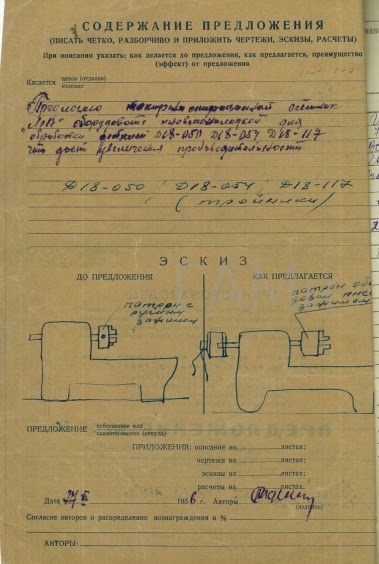 СОДЕРЖАНИЕ ПРЕДЛОЖЕНИЯ
(ПИСАТЬ ЧЕТКО, РАЗБОРЧИВО И ПРИЛОЖИТЬ ЧЕРТЕЖИ, ЭСКИЗЫ, РАСЧЕТЫ)
При описании указать: как делается до предложения, как предлагается, преимущество
(эффект) от предложения
Касается цехов (отдела)
изделия
Предлагаю токарный станок
обрудовать для
обработки деталей Д18-050 Д18-054 Д18-117
что дает увеличения производительности
Д18-050; Д18-054; Д18-117
(тройники)
ЭСКИЗ
ДО ПРЕДЛОЖЕНИЯ
КАК ПРЕДЛАГАЕТСЯ
патрон с
ручным
зажимом
патрон обо
дован пне
зажимом
ПРЕДЛОЖЕНИЕ собственное или
заимствованное (откуда)
ПРИЛОЖЕНИЯ: описание на листах;
чертежи на листах;
эскизы на листах;
расчеты на листах;
Дата 1956 г. Авторы
(подпись)
Согласие авторов о распределении вознаграждения в %
АВТОРЫ: